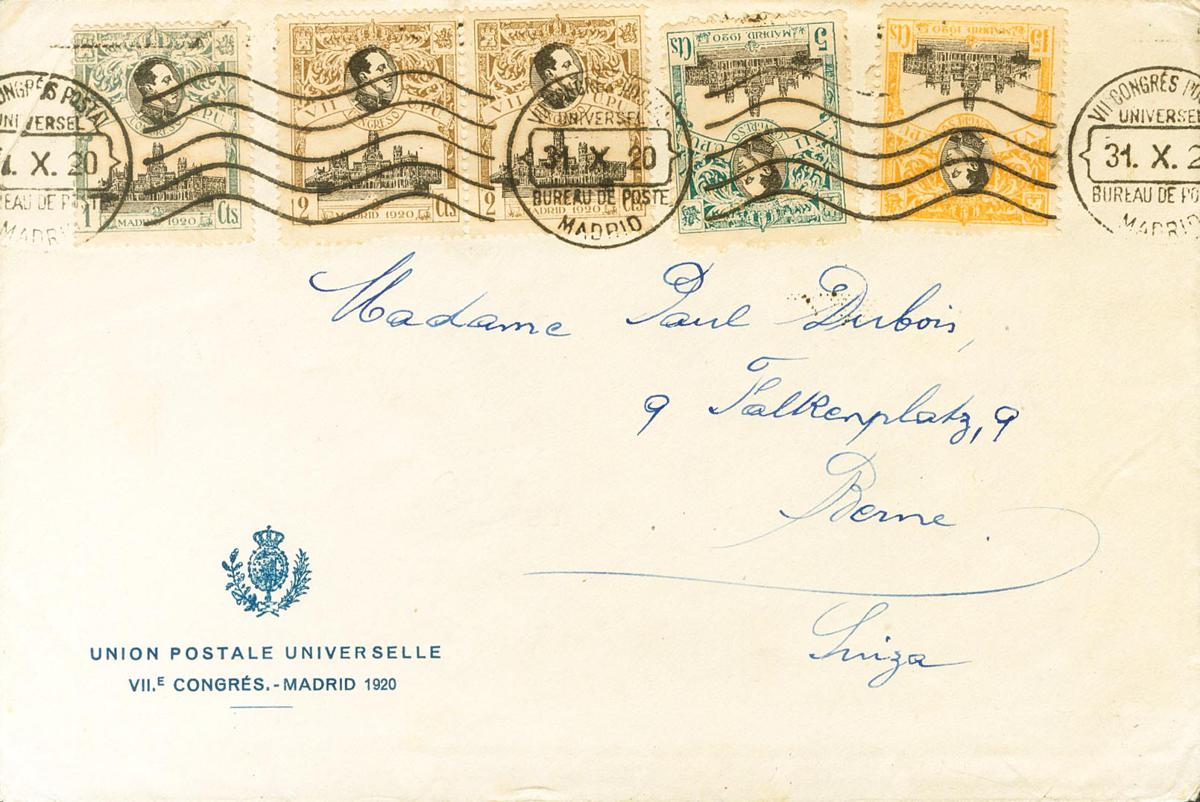 VII CONGRESO UPU
1 Cts
MADRID 1920
VII CONGRESO UPU
2 Cts
MADRID 1920
VII CONGRESO UPU
2
MADRID 1920
5 Cts
MADRID 1920
VII CONGRESO UPU
15 Cts
MADRID 1920
VII CONGRESO UPU
CONGRÉS POSTAL
UNIVERSEL
X. 20
BUREAU DE POSTE
MADRID
VII CONGRÉS POSTAL
UNIVERSEL
31. X. 20
BUREAU DE POSTE
MADRID
VII CONGRÉS
UNIVERSEL
31. X. 2
BUREAU DE
MADRID
Madame Paul Dubois,
9 Falkenplatz, 9
Berne.
Suiza
UNION POSTALE UNIVERSELLE
VII.E CONGRÉS.-MADRID 1920